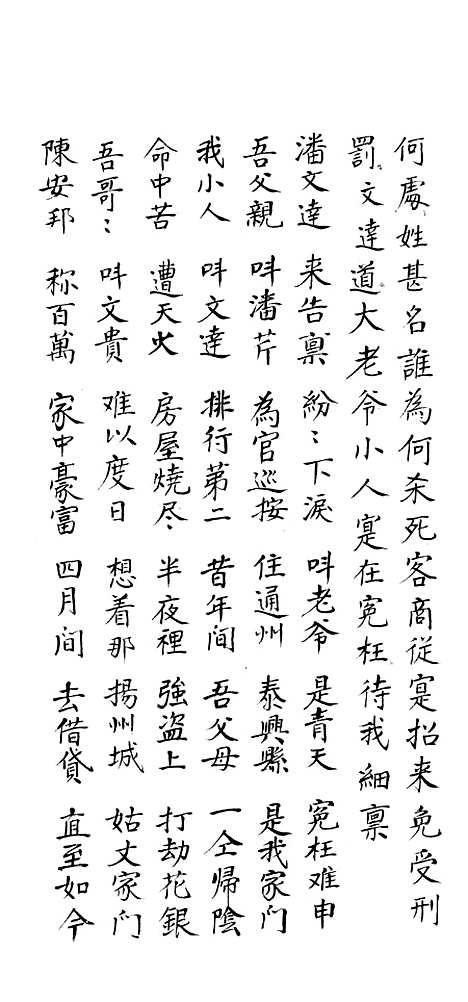 何處姓甚名誰為何杀死客商從寔招来免受刑
罰文達道大老爷小人寔在冤枉待我細禀
潘文達 来告禀 紛〻下淚 呌老爷 是青天 冤枉难申
吾父親 呌潘芹 為官巡按 住通州 泰興縣 是我家门
我小人 呌文達 排行第二 昔年间 吾父母 一仝歸陰
命中苦 遭天火 房屋燒尽 半夜裡 強盗上 打劫花銀
吾哥〻 呌文貴 难以度日 想着那 揚州城 姑丈家门
陳安邦 称百萬 家中豪富 四月间 去借貸 直至如今